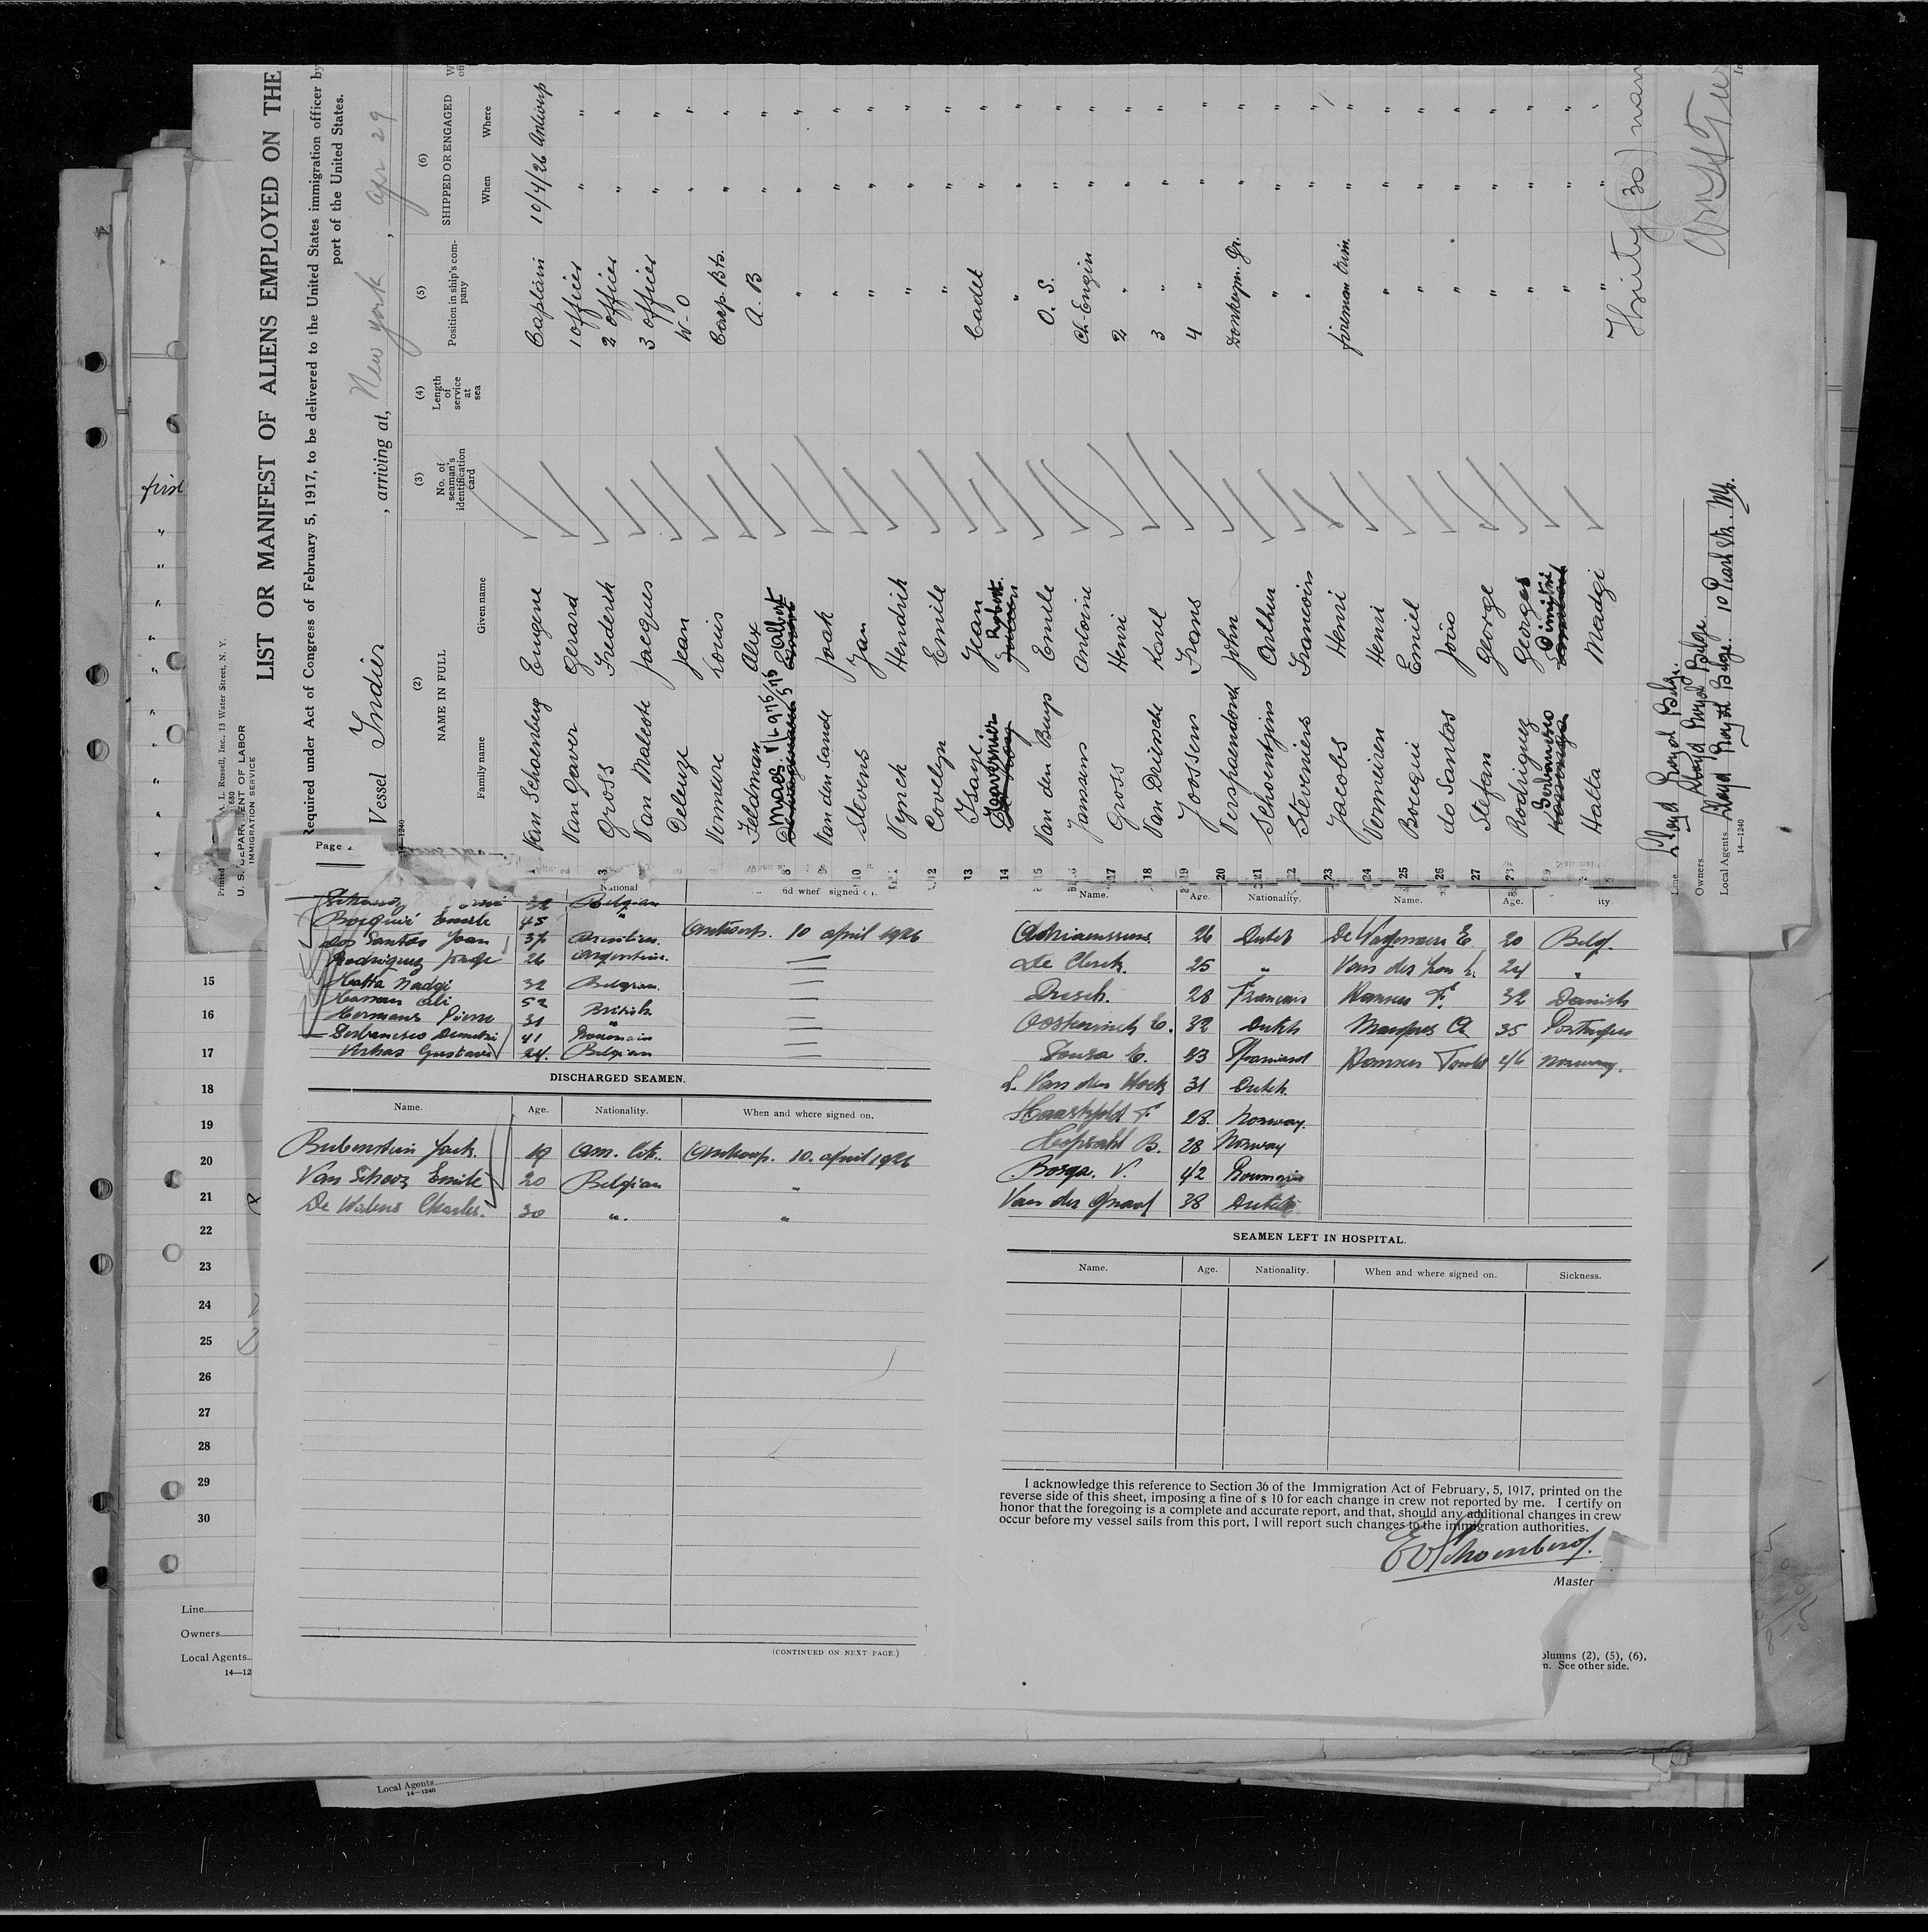 LIST OR MANIFEST OF ALIENS EMPLOYED ON THE
Required under Act of Congress of February 5, 1917, to be delivered to the United States immigration officer by
port of the United States.
Vessel Indier, arriving at, New York, Apr 29
Printed A. L. Russell, Inc., 13 Water Street, N. Y.
680
U. S. DEPARTMENT OF LABOR
IMMIGRATION SERVICE
14—1240
Page
(2) (3) (4) (5) (6)
NAME IN FULL No. of seaman's identification card Length of service at sea Position in ship's company SHIPPED OR ENGAGED
Family name Given name When Where
Van Schoenberg Eugene Captain 10/4/26 Antwerp
Van Gaver Gerard 1 officer " "
3 Gross Frederik 2 officer " "
Van Malcote Jacques 3 officer " "
Deleuze Jean W-O " "
Vermeire Louis Carp. Bts. " "
Feldman Alex A. B " "
8 Maes Albert " " "
9 Van den Sande Jack " " "
10 Stevens Jan " " "
11 Vynck Hendrik " " "
12 Covelyn Emile " " "
13 Isaye Jean Cadet " "
14 Robert " " "
15 Van den Burp Emile O. S. " "
Jansans Antoine Ch. Engin " "
17 Gross Henri 2 " " "
18 Van Driesche Karel 3 " " "
19 Joossens Frans 4 " " "
20 Verspaendonck John Donkeym. Gr. " "
21 Schoentjens Arthur " " "
22 Steveniers Francois " " "
23 Jacobs Henri fireman trim. " "
24 Vermeiren Henri " " "
25 Bocequi Emiel " " "
26 do Santos João " " "
27 Stefan George " " "
28 Rodriguez Georges " " "
Serbanesco Dimitri " " "
Hatta Madgi " " "
Thirty (30) nam
Line Lloyd Royal Belge.
Owners Lloyd Royal Belge
Local Agents Lloyd Royal Belge. 10 Pearl Str. NY.
14—1240
first
15
16
17
18
19
20
21
22
23
24
25
26
27
28
29
30
Line
Owners
Local Agents
14—12
National nd wher signed
32 Belgian
Bocquei Emile 45 "
Dos Santos Joan 37 Antwerp. 10 april 1926
Rodriguez Jorge 26 Argentin.
Hatta Nadgi 32 Belgian.
Hassan Ali 52 British
Hermans Pierre 31 "
Serbanesco Demetri 41 Roumain
Gustave 24. Belgian
DISCHARGED SEAMEN.
Name. Age. Nationality. When and where signed on.
Rubenstein Jack. 19 Am. Cit. Antwerp. 10. april 1926
Van Schoor Emile 20 Belgian "
De Walens Charles. 30 " "
(CONTINUED ON NEXT PAGE.)
Name. Age. Nationality. Name. Age. ity.
Adriaenssens. 26 Dutch De Wagemaen E 20 Belg.
De Clerck. 25 " 24 "
Dresch. 28 Francais Hansen F. 32 Danish
E. 32 Dutch Marques A 35 Portugues
Sousa C. 23 46 Norway.
L. Van den Hoek 31 Dutch
F. 28. Norway.
B. 28 Norway
Borga. V. 42
Van der Graaf 38 Dutch
SEAMEN LEFT IN HOSPITAL.
Name. Age. Nationality. When and where signed on. Sickness.
I acknowledge this reference to Section 36 of the Immigration Act of February, 5, 1917, printed on the
reverse side of this sheet, imposing a fine of $ 10 for each change in crew not reported by me. I certify on
honor that the foregoing is a complete and accurate report, and that, should any additional changes in crew
occur before my vessel sails from this port, I will report such changes to the immigration authorities.
Master
olumns (2), (5), (6),
n. See other side.
Local Agents
14—1240